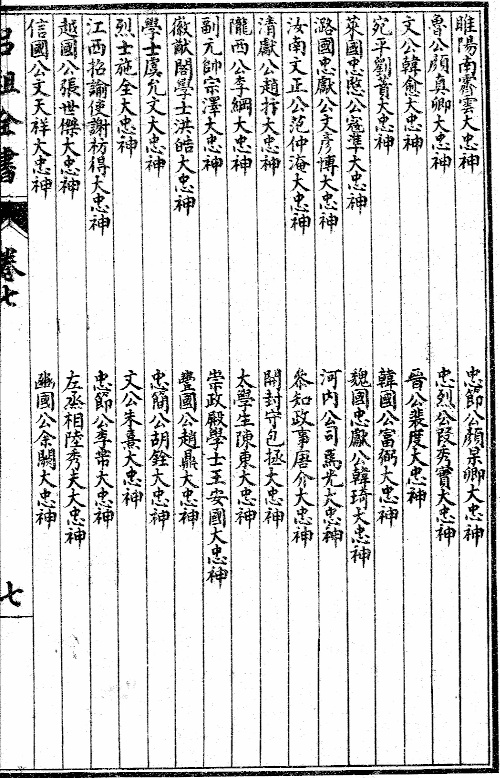 睢陽南霽雲大忠神　忠節公顏杲卿大忠神
魯公顏真卿大忠神　忠烈公段秀實大忠神
文公韓愈大忠神　晉公裴度大忠神
宛平劉蕡大忠神　韓國公富弼大忠神
萊國忠愍公寇準大忠神　魏國忠獻公韓琦大忠神
潞國忠獻公文彥博大忠神　河內公司馬光大忠神
汝南文正公范仲淹大忠神　參知政事唐介大忠神
清獻公趙抃大忠神　開封守包拯大忠神
隴西公李綱大忠神　太學生陳東大忠神
副元帥宗澤大忠神　崇政殿學士王安國大忠神
徽猷閣學士洪皓大忠神　豐國公趙鼎大忠神
學士虞允文大忠神　忠簡公胡銓大忠神
烈士施全大忠神　文公朱熹大忠神
江西招諭使謝枋得大忠神　忠節公李芾大忠神
越國公張世傑大忠神　左丞相陸秀夫大忠神
信國公文天祥大忠神　豳國公余闕大忠神
呂祖全書　卷七　七